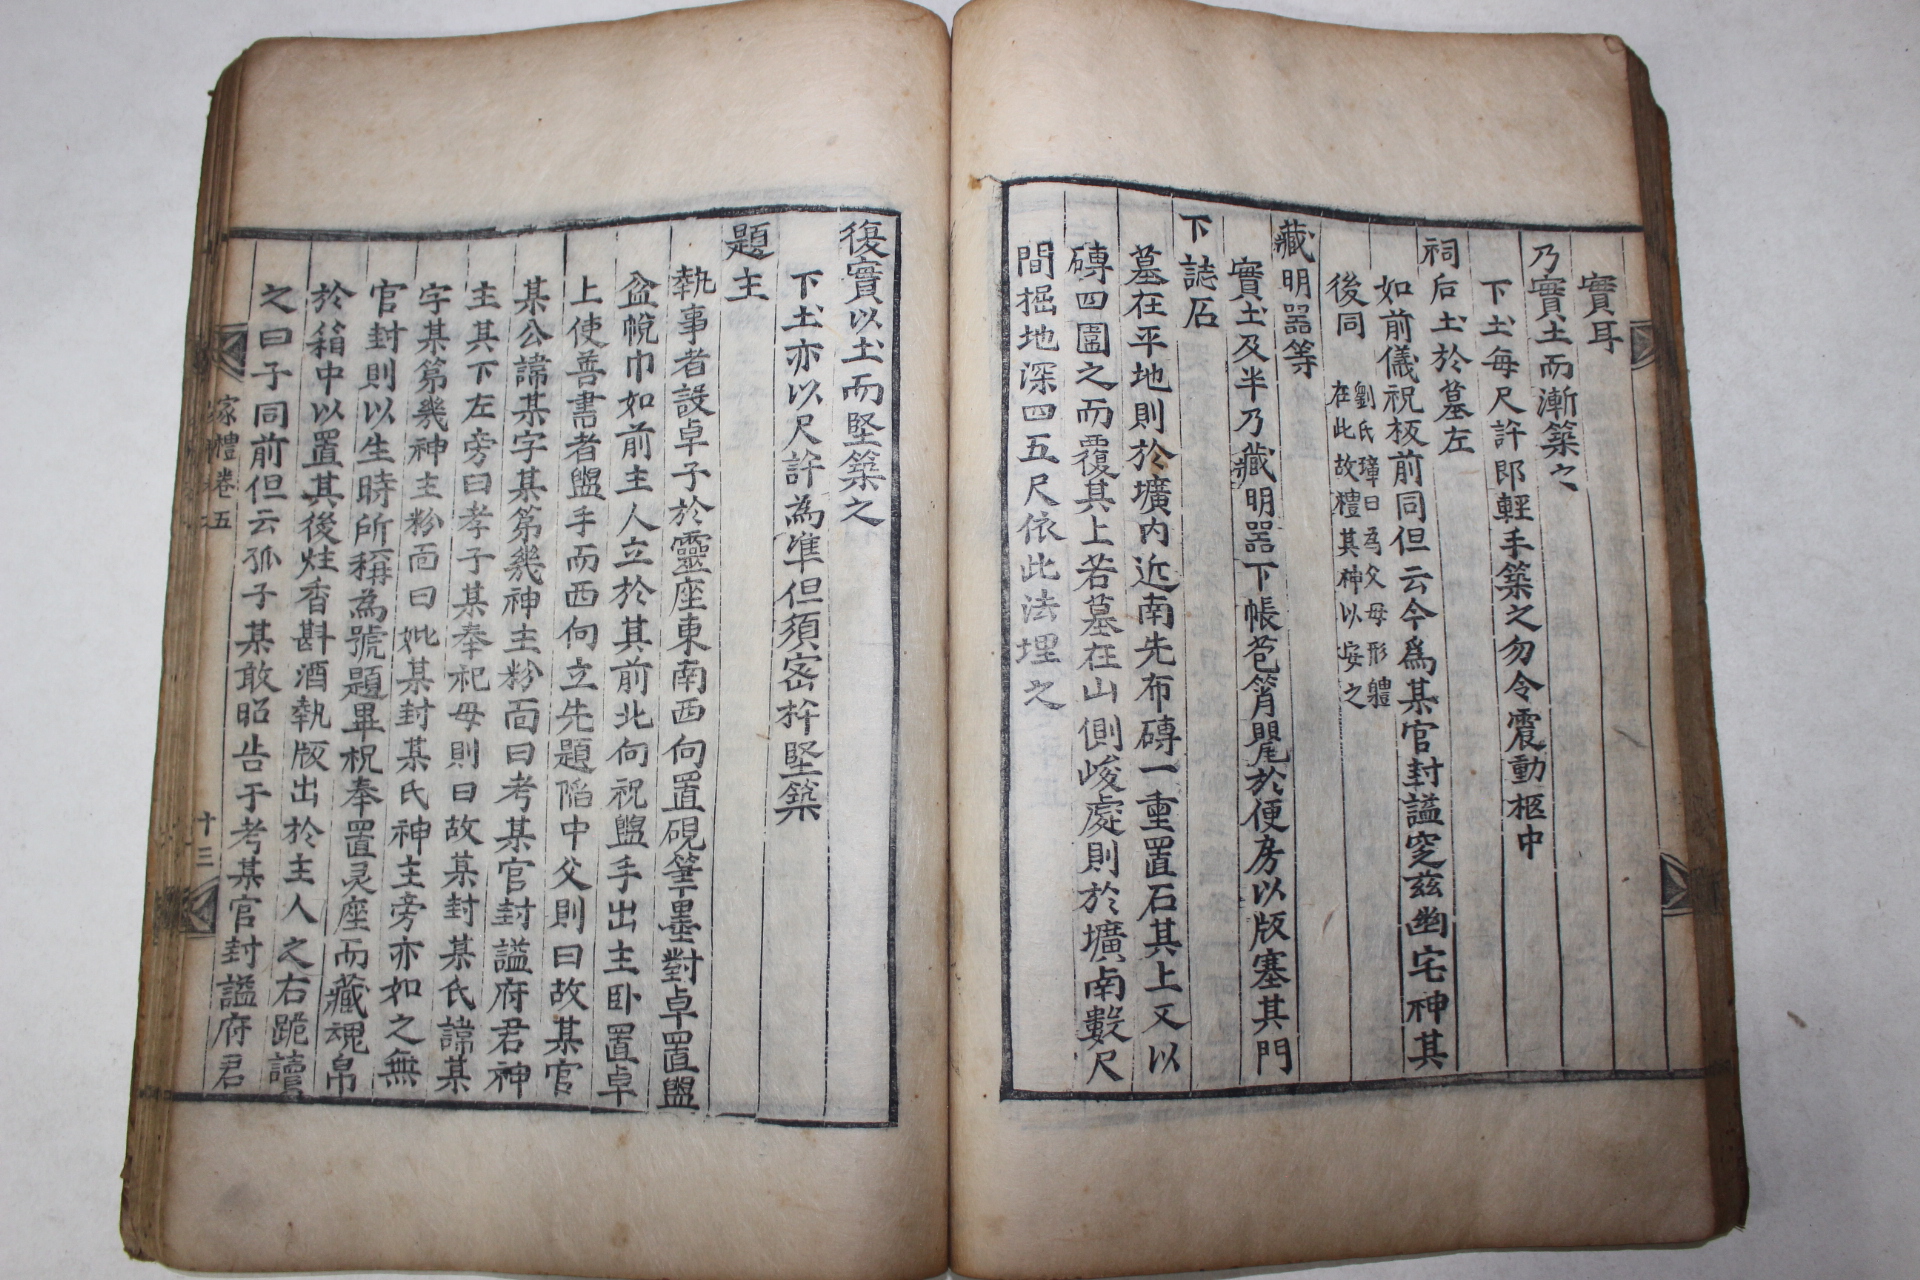 實耳
乃實土而漸築之
下土每尺許卽輕手築之勿令震動柩中
祠后土於墓左
如前儀祝板前同但云今爲某官封諡窆茲幽宅神其
後同
劉氏璋曰為父母形軆
在此故禮其神以安之
藏明器等
實土及半乃藏明器下帳苞筲甖於便房以版塞其門
下誌石
墓在平地則於壙內近南先布磚一重置石其上又以
磚四圍之而覆其上若墓在山側峻處則於壙南數尺
間掘地深四五尺依此法埋之
復實以土而堅築之
下土亦以尺許為準但須密杵堅築
題主
執事者設卓子於靈座東南西向置硯筆墨對卓置盥
盆帨巾如前主人立於其前北向祝盥手出主卧置卓
上使善書者盥手而西向立先題陷中父則曰故某官
某公諱某字某第幾神主粉面曰考某官封諡府君神
主其下左旁曰孝子某奉祀母則曰故某封某氏諱某
字某第幾神主粉面曰妣某封某氏神主旁亦如之無
官封則以生時所稱為號題畢祝奉置灵座而藏魂帛
於箱中以置其後炷香斟酒執版出於主人之右跪讀
之曰子同前但云孤子某敢昭告于考某官封諡府君
家禮卷五
十三